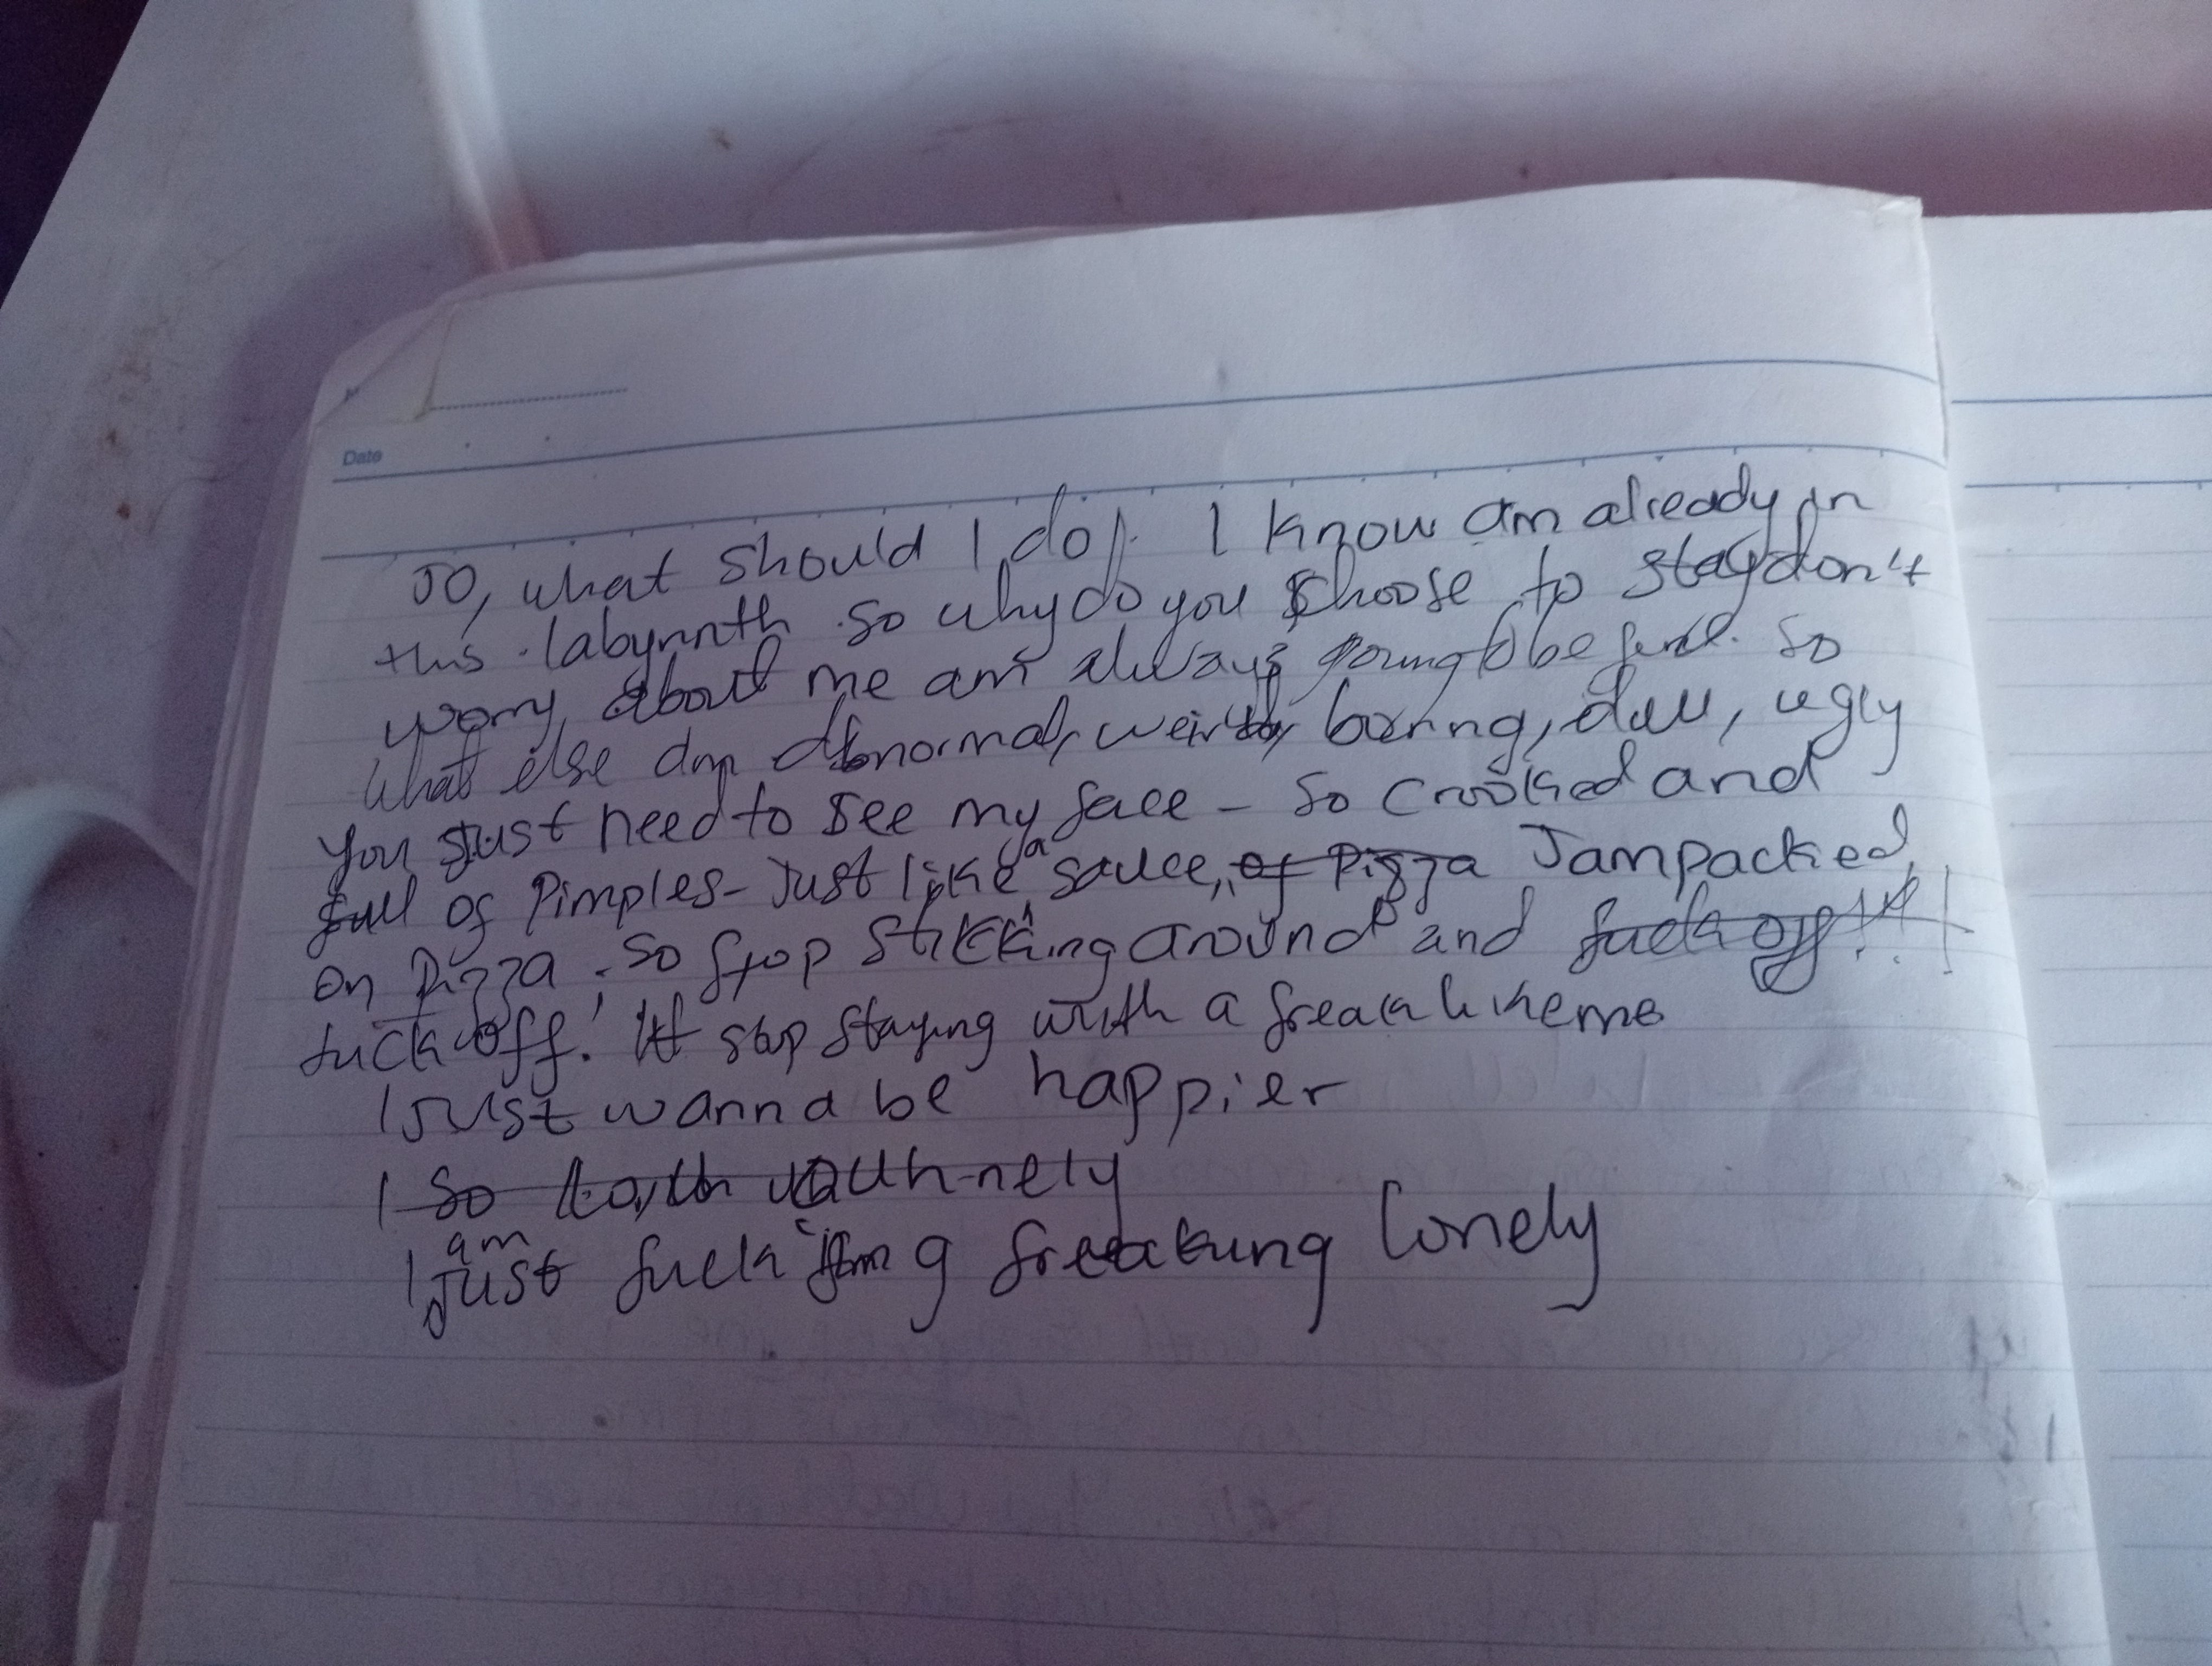 Date
So, what should I do. I know am already in
this labyrinth so why do you choose to stay don't
worry about me am always going to be fine. So
What else am abnormal, weird, boring, dull, ugly
You just need to see my face - so crooked and
full of Pimples - Just like a sauce, of Pizza Jampacked
on Pizza. So stop sticking around and fuck off!!!
fuck off! stop staying with a freak like me
I just wanna be happier
I so
I am just fucking freaking lonely